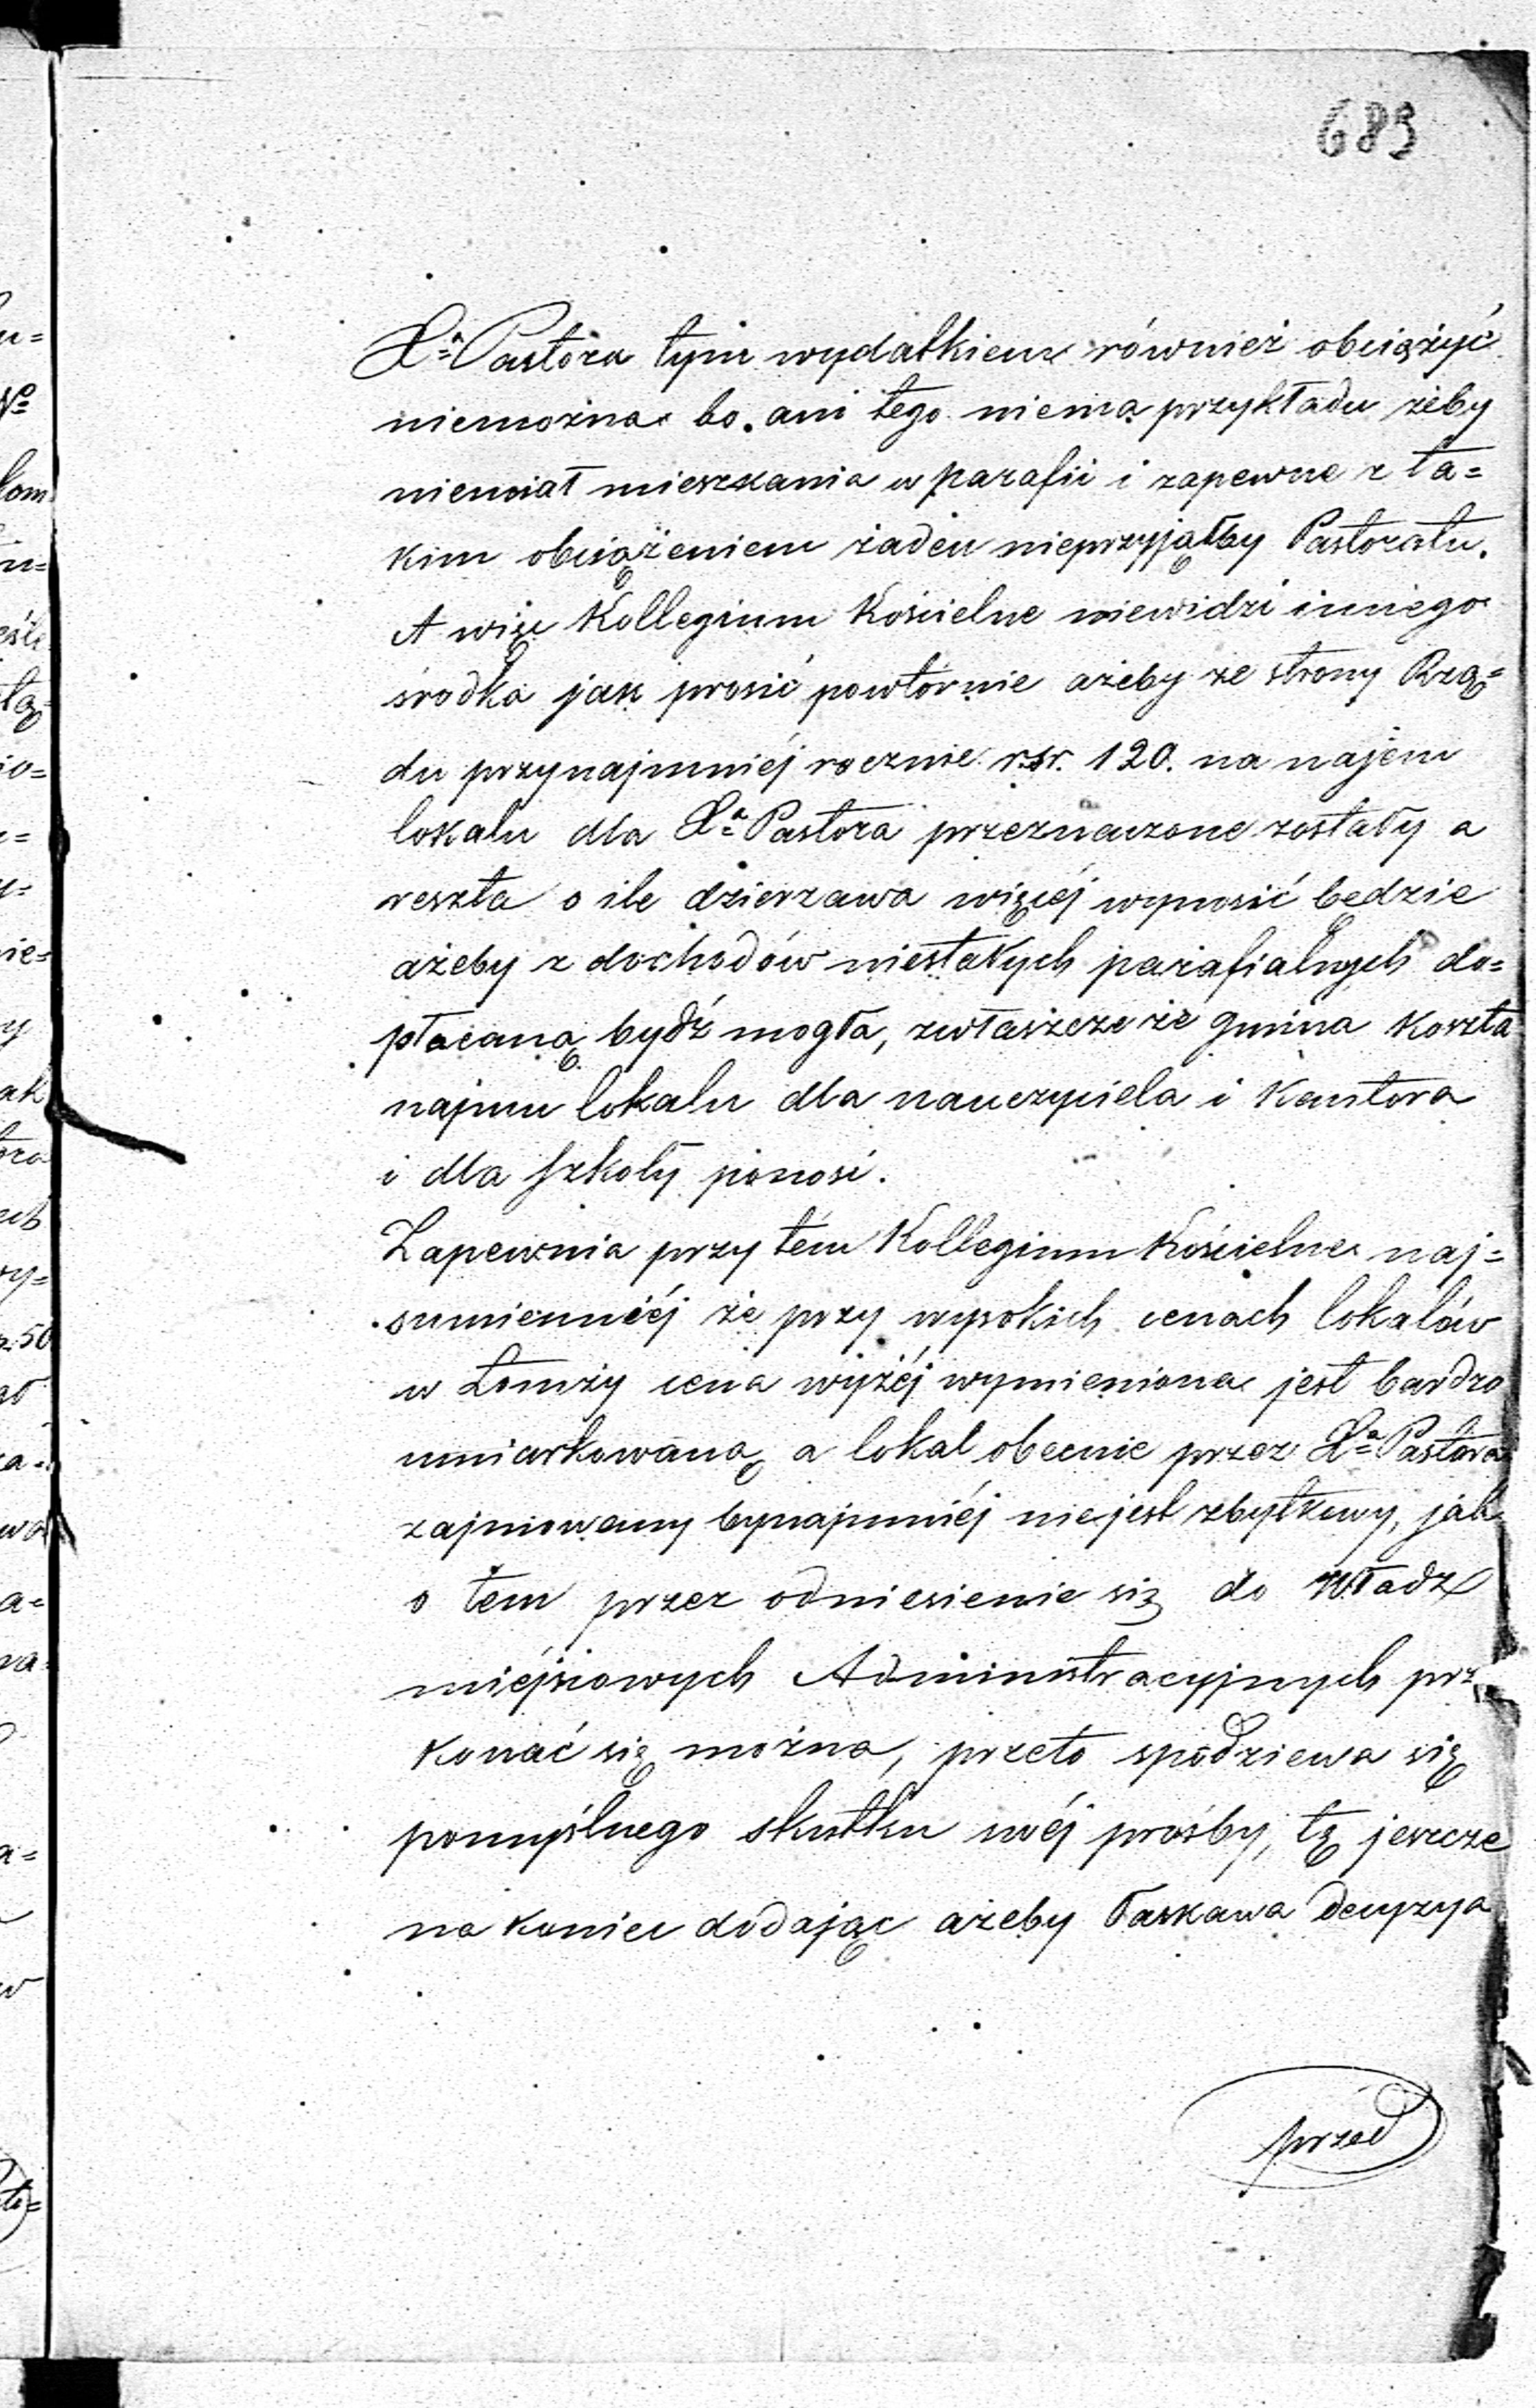 683
Xa Pastora tym wydatkiem również obciążyć
niemożna bo ani tego niema przykładu żeby
niemiał mieszkania w parafii i zapewne z ta=
kim obciążeniem żaden nieprzyjąłby Pastoratu.
A więc Kollegium Kościelne niewidzi innego
środka jak prosić powtórnie ażeby ze strony Rzą=
du przynajmniéj rocznie rsr. 120. na najem
lokalu dla Xa Pastora przeznaczone zostały a
reszta o ile dzierzawa więcéj wynosić będzie
ażeby z dochodów niestałych parafialnych do=
płacaną bydź mogła, zwłaszcze że gmina koszta
najmu lokalu dla nauczyciela i Kantora
i dla szkoły ponosi.
Zapewnia przy tém Kollegium Kościelne naj=
sumienniéj że przy wysokich cenach lokalów
w Łomży cena wyżéj wymieniona jest bardzo
umiarkowaną a lokal obecnie przez Xa Pastora
zajmowany bynajmniéj nie jest zbytkowy, jak
o tem przez odniesienie się do władz
miéjscowych Administracyjnych prze
konać się można, przeto spodziewa się
pomyślnego skutku swéj prośby, tę jeszcze
na koniec dodając ażeby łaskawa decyzya
przed